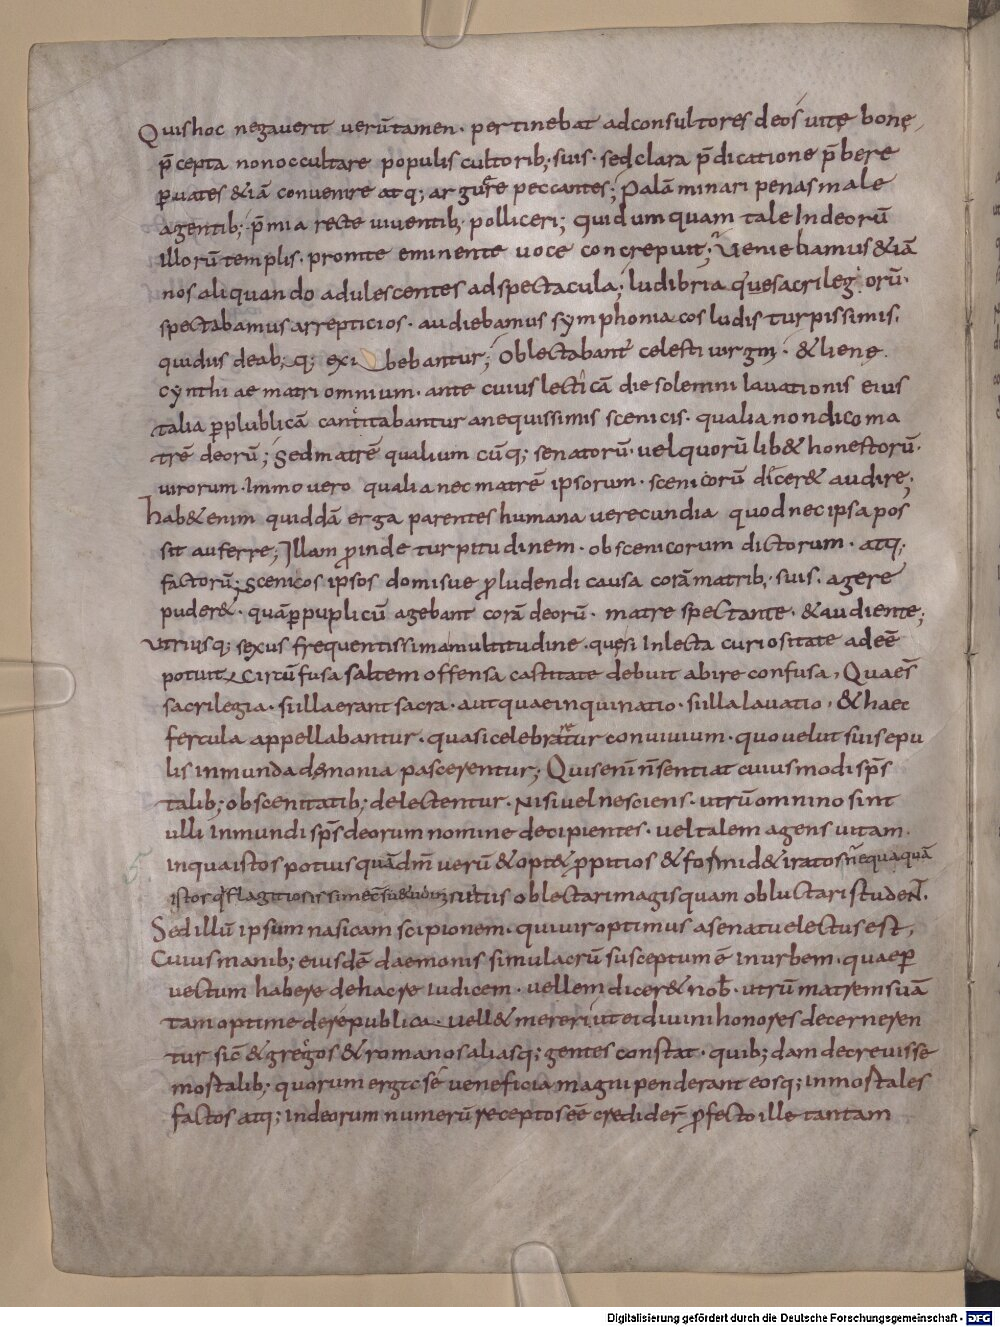 Quis hoc negaverit verūtamen · pertinebat ad consultores deos vitę bonę
p̄cepta non occultare populis cultorib; suis · sed clara p̄dicatione p̄bere
ꝑ uates & iā convenire atq; arguere peccantes; Palā minari penas male
agentib; p̄mia recte viventib; polliceri; quid umquam tale In deorū
illorū templis · promte eminente voce concrepuit; Veniebamus & iā
nos aliquando adulescentes ad spectacula; ludibria quę sacrilegiorū·
spectabamus arrepticios · audiebamus symphoniacos ludis turpissimis·
qui diis deab; q; exi bebantur; Oblectabant celesti virgini · & lienę·
cynthiae matri omnium · ante cuius lecticā die solemni lavationis eius
talia ꝑ plublicā cantitabantur a nequissimis scenicis · qualia non dico ma
trē deorū; Sed matrē qualium cūq; senatorū · vel quorū lib& honestorū·
virorum · Immo vero qualia nec matrē ipsorum · scenicorū dicer& audire;
hab& enim quiddā erga parentes humana verecundia quod nec ipsa pos
sit auferre; Illam ꝓinde turpitudinem · obscenicorum dictorum · atq;
factorū; Scenicos ipsos domi sue ꝓludendi causa corā matrib; suis · agere
puder& · quā ꝑ puplicū agebant corā deorū · matre spectante · & audiente;
utriusq; sexus frequentissima multitudine · quęsi Inlecta curiositate adeē
potuit Circūfusa saltem offensa castitate debuit abire confusa, Quae s̄
sacrilegia · si illa erant sacra · aut quae inquinatio · si illa lavatio, & haec
fercula appellabantur · quasi celebraretur convivium · quo velut suis epu
lis inmunda dęmonia pascerentur; Quis enī n̄ sentiat cuiusmodi sp̄s
talib; obscenitatib; delectentur · Nisi vel nesciens · utrū omnino sint
ulli Inmundi sp̄s deorum nomine decipientes · vel talem agens vitam·
in qua istos potius quādm̄ verū & opt& ꝓpitios & formid& iratos nequaquā
sutiis oblectari magis quam obluctari studet·
Sed illū ipsum nasicam scipionem · qui vir optimus a senatu electus est,
Cuius manib; eiusdē daemonis simulacrū susceptum ē In urbem · quae ꝑ
vectum habere de hac re Iudicem · vellem dicer& nob̄ · utrū matrem suā
tam optime de re publica · vell& mereri ut ei divini honores decerneren
tur sic̄ & gregos & romanos aliasq; gentes constat · quib;dam decrevisse
mortalib; quorum erga sē veneficia magni penderant eosq; inmortales
factos atq; in deorum numerū receptos eē credider̄ ꝓfecto ille tantam
Digitalisierung gefördert durch die Deutsche Forschungsgemeinschaft - DFG